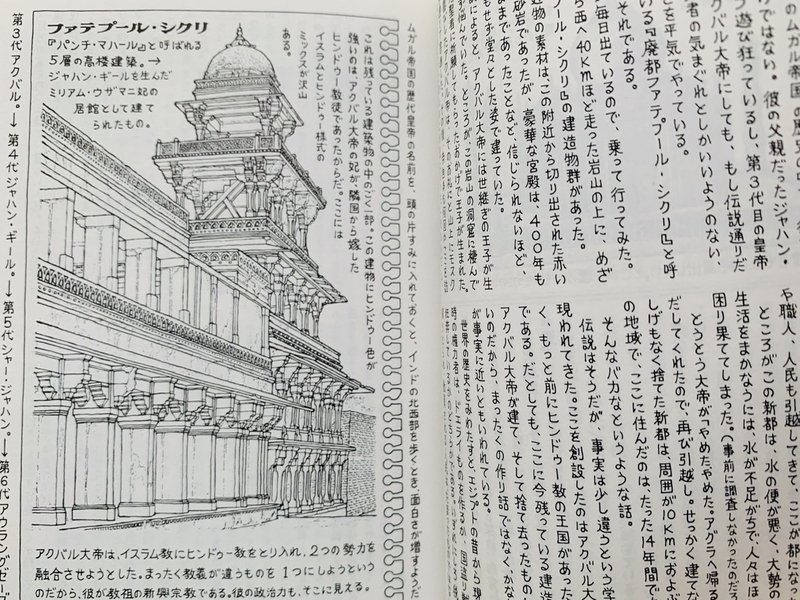 のムガル帝国の歴史
けではない。彼の父親だったジャハン・
遊び狂っているし、第3代目の皇帝
アクバル大帝にしても、もし伝説通りだ
者の気まぐれとしかいいようのない、
とを平気でやっている。
いる『廃都ファテプール・シクリ』と呼
それである。
毎日出ているので、乗って行ってみた。
西へ40kmほど走った岩山の上に、めざ
プール・シクリ』の建造物群があった。
造物の素材は、この附近から切り出された赤い
砂岩であったが、豪華な宮殿は、400年も
まであったことなど、信じられないほど、
もせず堂々とした姿で建っていた。
によると、アクバル大帝には世継ぎの王子が生
悩んでいた。ところが、この岩山の洞窟に棲んで
祈願してもらったおかげで王子が生まれた。
や職人、人民も引越してきて、ここが都になっ
ところがこの新都は、水の便が悪く、大勢の
生活をまかなうには、水が不足がちで人々はほ
困り果ててしまった。（事前に調査しなかったのだ
とうとう大帝が「やめたやめた。アグラへ帰る
だしてくれたので、再び引越し。せっかく建て
しげもなく捨てた新都は、周囲が10kmにおよ
の地域で、ここに住んだのは、たった14年間で
そんなバカなというような話。
伝説はそうだが、事実は少し違うという学
現われてきた。ここを創設したのはアクバル大
く、もっと前にヒンドゥー教の王国があった
である。だとしても、ここに今残っている建造
アクバル大帝が建て、そして捨て去ったもの
いのだから、まったくの作り話ではなく、かな
が事実に近いともいわれている。
世界の歴史をみわたすと、エジプトの昔から現
時の権力者は、ドエライものを作るか、国盗り
ムガル帝国の歴代皇帝の名前を、頭の片すみに入れておくと、インドの北西部を歩くとき、面白さが増すようだ
ファテプール・シクリ
『パンチ・マハール』と呼ばれる
5層の高楼建築。→
ジャハン・ギールを生んだ
ミリアム・ウザマニ妃の
居館として建て
られたもの。
これは残っている建築物の中のごく一部。この建物にヒンドゥー色が
強いのは、アクバル大帝の妃が隣国から嫁した
ヒンドゥー教徒であったからだ。ここには
イスラムとヒンドゥー様式の
ミックスが沢山
ある。
アクバル大帝は、イスラム教にヒンドゥー教をとり入れ、2つの勢力を
融合させようとした。まったく教義が違うものを1つにしようという
のだから、彼が教祖の新興宗教である。彼の政治力も、そこに見える。
第3代アクバル。→第4代ジャハン・ギール。→第5代シャー・ジャハン。→第6代アウラングゼーブ